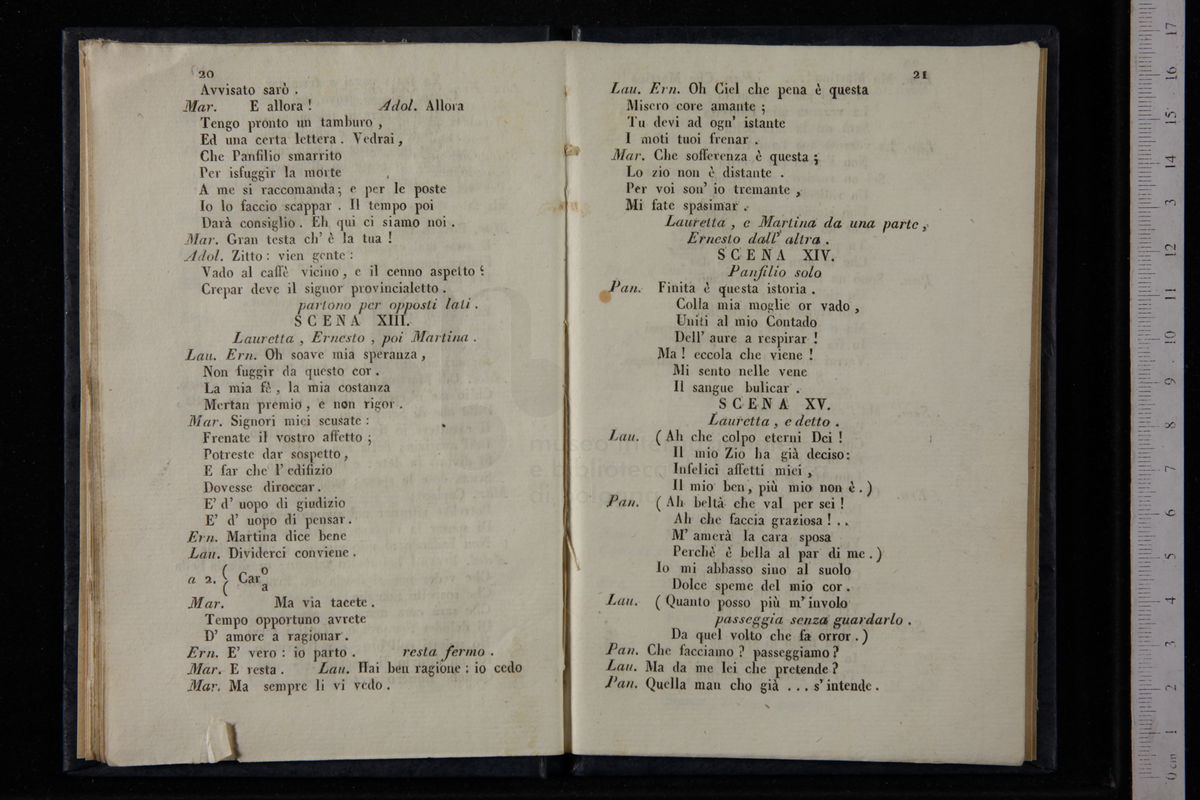 20
Avvisato sarò .
Mar. E allora ! Adol. Allora
Tengo pronto un tamburo ,
Ed una certa lettera . Vedrai ,
Che Panfilio smarrito
Per isfuggir la morte
A me si raccomanda ; e per le poste
Io lo faccio scappar . Il tempo poi
Darà consiglio . Eh qui ci siamo noi .
Mar. Gran testa ch' è la tua !
Adol. Zitto : vien gente :
Vado al caffè vicino , e il cenno aspetto :
Crepar deve il signor provincialetto .
partono per opposti lati .
SCENA XIII.
Lauretta , Ernesto , poi Martina .
Lau. Ern. Oh soave mia speranza ,
Non fuggir da questo cor .
La mia fè , la mia costanza
Mertan premio , e non rigor .
Mar. Signori miei scusate :
Frenate il vostro affetto ;
Potreste dar sospetto ,
E far che l' edifizio
Dovesse diroccar .
E' d' uopo di giudizio
E' d' uopo di pensar .
Ern. Martina dice bene
Lau. Dividerci conviene .
a 2. { Caro
a
Mar. Ma via tacete .
Tempo opportuno avrete
D' amore a ragionar .
Ern. E' vero : io parto . resta fermo .
Mar. E resta . Lau. Hai ben ragione : io cedo
Mar. Ma sempre li vi vedo .
21
Lau. Ern. Oh Ciel che pena è questa
Misero core amante ;
Tu devi ad ogn' istante
I moti tuoi frenar .
Mar. Che sofferenza è questa ;
Lo zio non è distante .
Per voi son' io tremante ,
Mi fate spasimar .
Lauretta , e Martina da una parte ,
Ernesto dall' altra .
SCENA XIV.
Panfilio solo
Pan. Finita è questa istoria .
Colla mia moglie or vado ,
Uniti al mio Contado
Dell' aure a respirar !
Ma ! eccola che viene !
Mi sento nelle vene
Il sangue bulicar .
SCENA XV.
Lauretta , e detto .
Lau. ( Ah che colpo eterni Dei !
Il mio Zio ha già deciso :
Infelici affetti miei ,
Il mio ben , più mio non è . )
Pan. ( Ah beltà che val per sei !
Ah che faccia graziosa ! . .
M' amerà la cara sposa
Perchè è bella al par di me . )
Io mi abbasso sino al suolo
Dolce speme del mio cor .
Lau. ( Quanto posso più m' involo
passeggia senza guardarlo .
Da quel volto che fa orror . )
Pan. Che facciamo ? passeggiamo ?
Lau. Ma da me lei che pretende ?
Pan. Quella man cho già . . . s' intende .